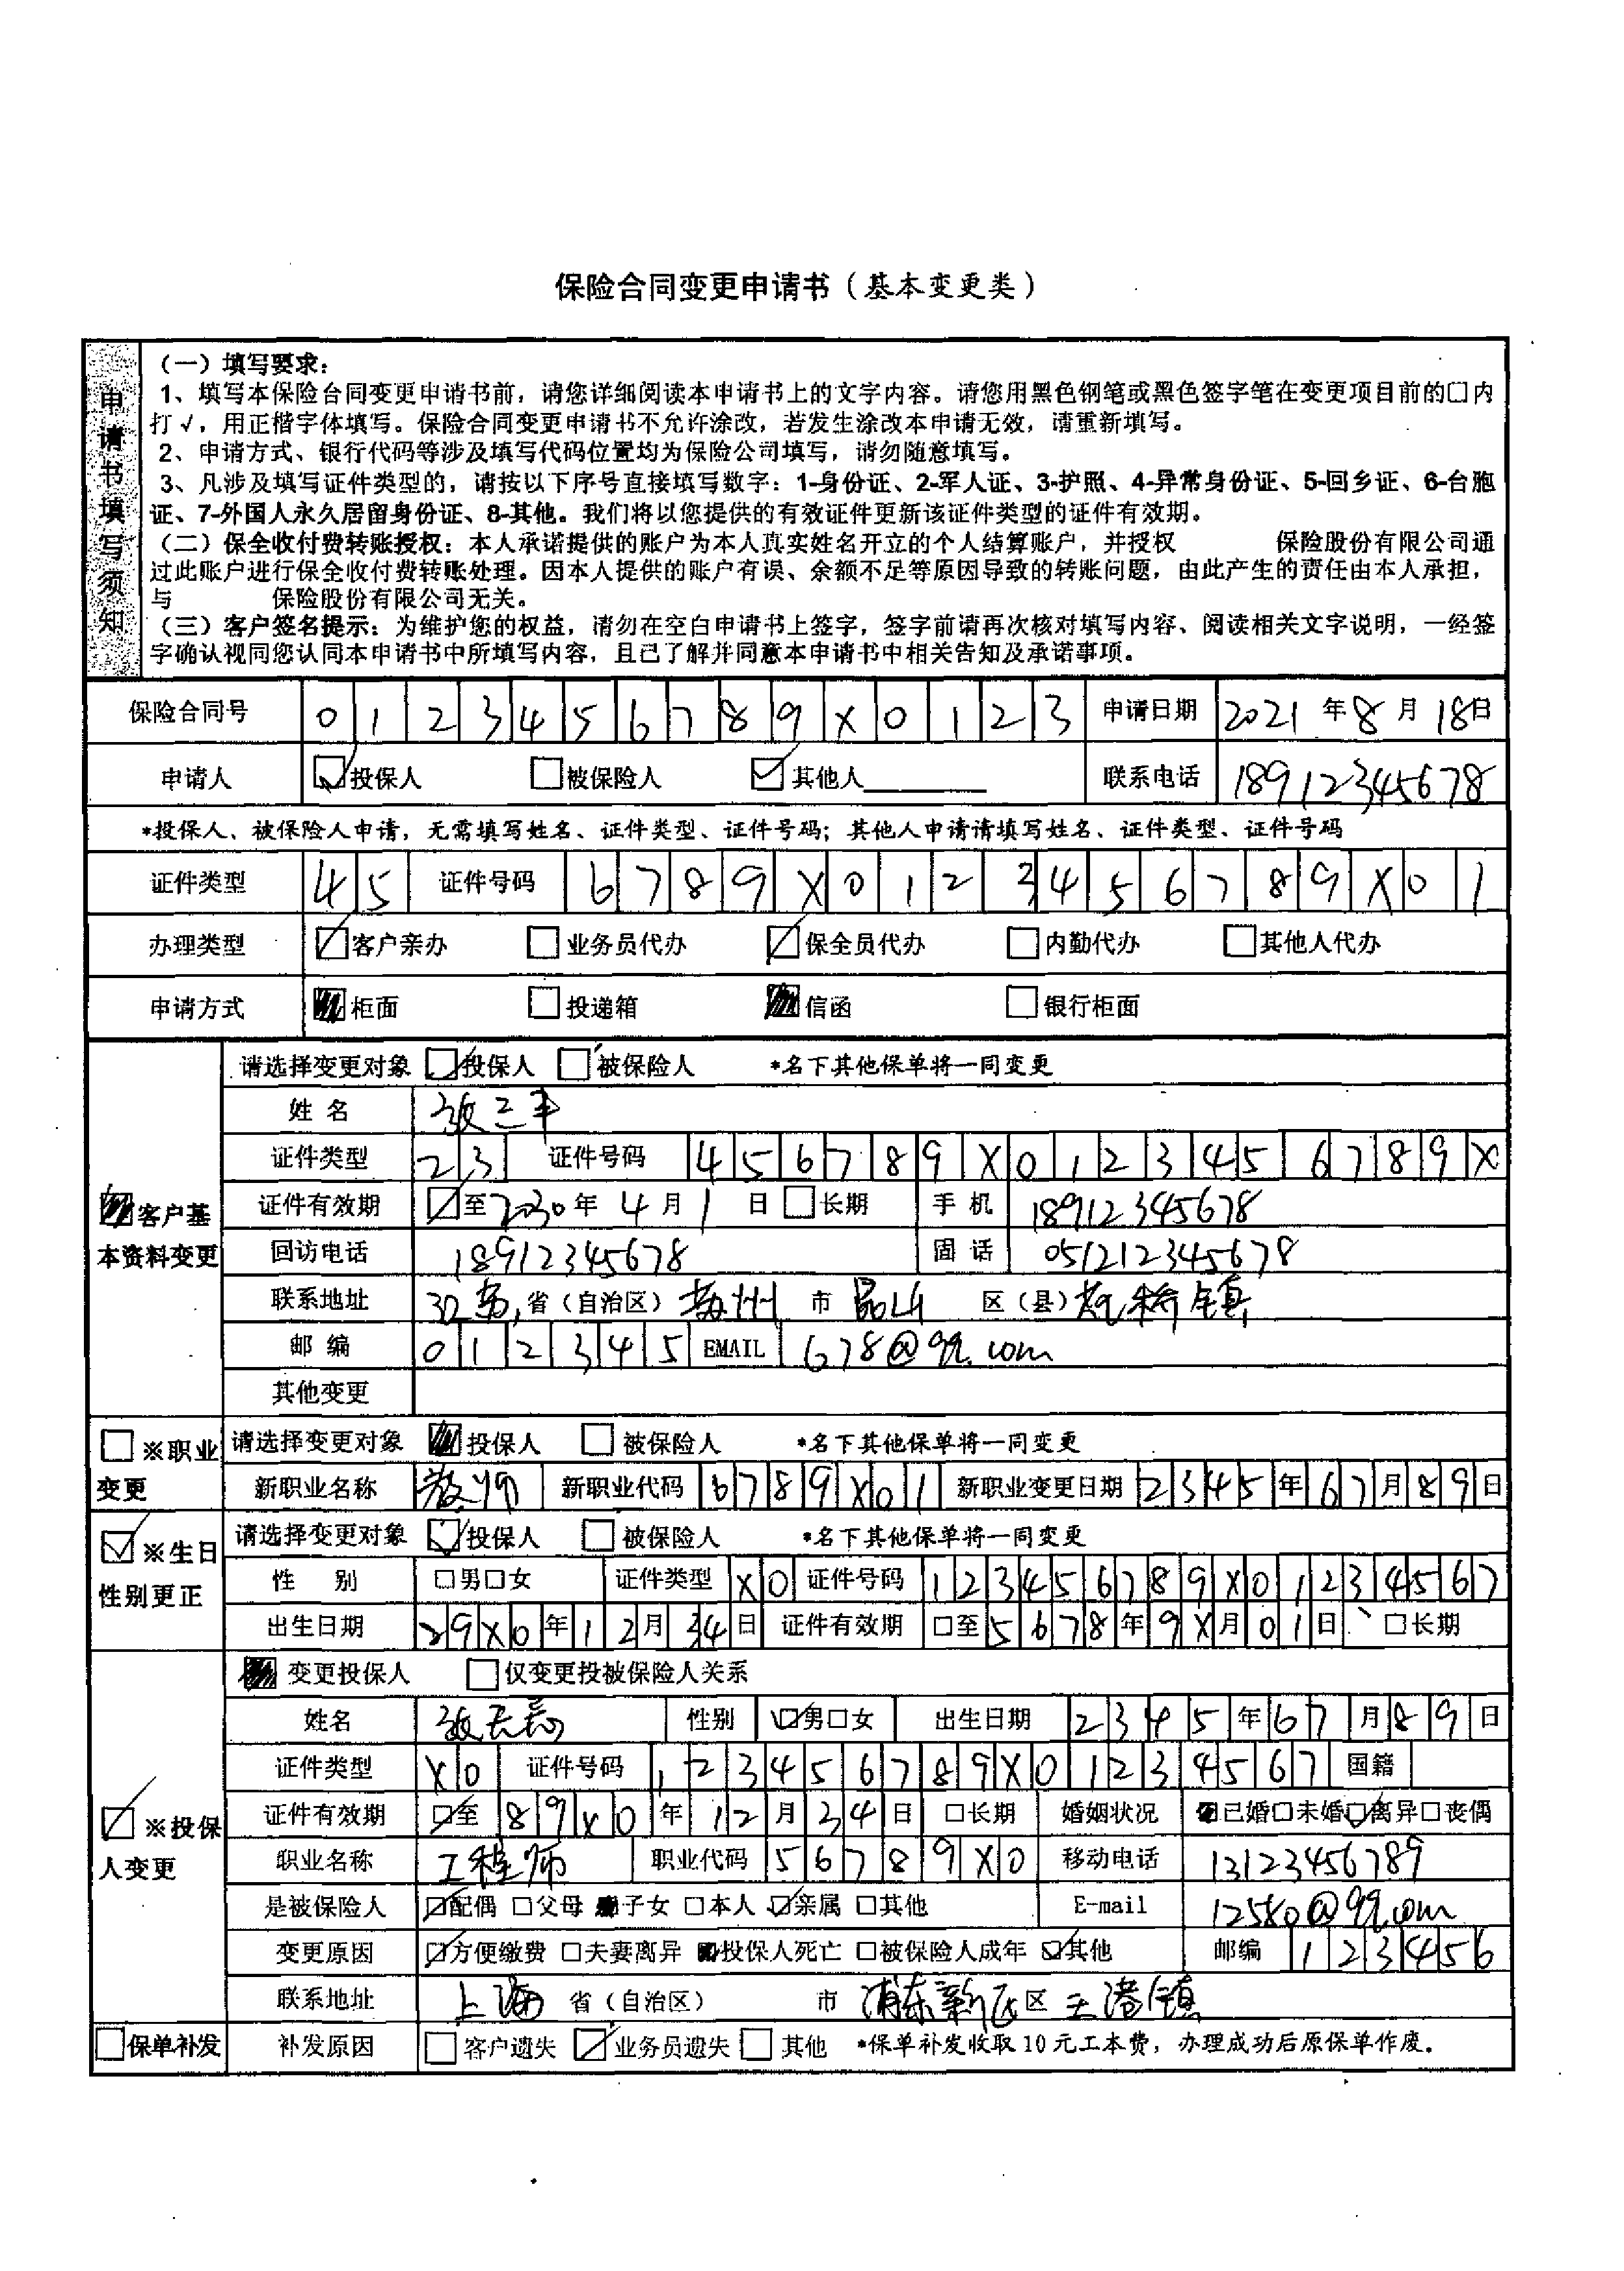 保险合同变更申请书（基本变更类）
申请书填写须知
（一）填写要求：
1、填写本保险合同变更申请书前，请您详细阅读本申请书上的文字内容。请您用黑色钢笔或黑色签字笔在变更项目前的□内
打√，用正楷字体填写。保险合同变更申请书不允许涂改，若发生涂改本申请无效，请重新填写。
2、申请方式、银行代码等涉及填写代码位置均为保险公司填写，请勿随意填写。
3、凡涉及填写证件类型的，请按以下序号直接填写数字：1-身份证、2-军人证、3-护照、4-异常身份证、5-回乡证、6-台胞
证、7-外国人永久居留身份证、8-其他。我们将以您提供的有效证件更新该证件类型的证件有效期。
（二）保全收付费转账授权：本人承诺提供的账户为本人真实姓名开立的个人结算账户，并授权 保险股份有限公司通
过此账户进行保全收付费转账处理。因本人提供的账户有误、余额不足等原因导致的转账问题，由此产生的责任由本人承担，
与 保险股份有限公司无关。
（三）客户签名提示：为维护您的权益，请勿在空白申请书上签字，签字前请再次核对填写内容、阅读相关文字说明，一经签
字确认视同您认同本申请书中所填写内容，且已了解并同意本申请书中相关告知及承诺事项。
保险合同号 0123456789X0123 申请日期 2021年8月18日
申请人 ☑投保人 □被保险人 ☑其他人 联系电话 18912345678
*投保人、被保险人申请，无需填写姓名、证件类型、证件号码；其他人申请请填写姓名、证件类型、证件号码
证件类型 45 证件号码 6789X0123456789X01
办理类型 ☑客户亲办 □业务员代办 ☑保全员代办 □内勤代办 □其他人代办
申请方式 ■柜面 □投递箱 ■信函 □银行柜面
■客户基本资料变更
请选择变更对象 ☑投保人 □被保险人 *名下其他保单将一同变更
姓名 张三丰
证件类型 23 证件号码 456789X0123456789X
证件有效期 ☑至2030年4月1日 □长期 手机 18912345678
回访电话 18912345678 固话 051212345678
联系地址 江苏省（自治区）苏州市昆山区（县）花桥镇
邮编 012345 EMAIL 678@qq.com
其他变更
□※职业变更
请选择变更对象 ■投保人 □被保险人 *名下其他保单将一同变更
新职业名称 教师 新职业代码 6789X01 新职业变更日期 2345年67月89日
☑※生日性别更正
请选择变更对象 ☑投保人 □被保险人 *名下其他保单将一同变更
性别 □男□女 证件类型 X0 证件号码 123456789X01234567
出生日期 29X0年12月34日 证件有效期 □至5678年9X月01日 □长期
☑※投保人变更
■变更投保人 □仅变更投被保险人关系
姓名 张无忌 性别 ☑男□女 出生日期 2345年67月89日
证件类型 X0 证件号码 123456789X01234567 国籍
证件有效期 ☑至89X0年12月34日 □长期 婚姻状况 ■已婚□未婚☑离异□丧偶
职业名称 工程师 职业代码 56789X0 移动电话 13123456789
是被保险人 ☑配偶 □父母 ■子女 □本人 ☑亲属 □其他 E-mail 12580@qq.com
变更原因 ☑方便缴费 □夫妻离异 ■投保人死亡 □被保险人成年 ☑其他 邮编 123456
联系地址 上海 省（自治区） 市 浦东新区 区 王港镇
□保单补发 补发原因 □客户遗失 ☑业务员遗失 □其他 *保单补发收取10元工本费，办理成功后原保单作废。